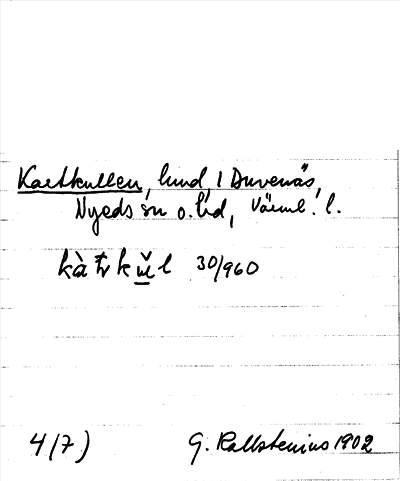 Kartkullen, lund, i Duvenäs,
Nyeds sn o. hd, Värml. l.
30/960
4/7)
G. Kallstenius 1902